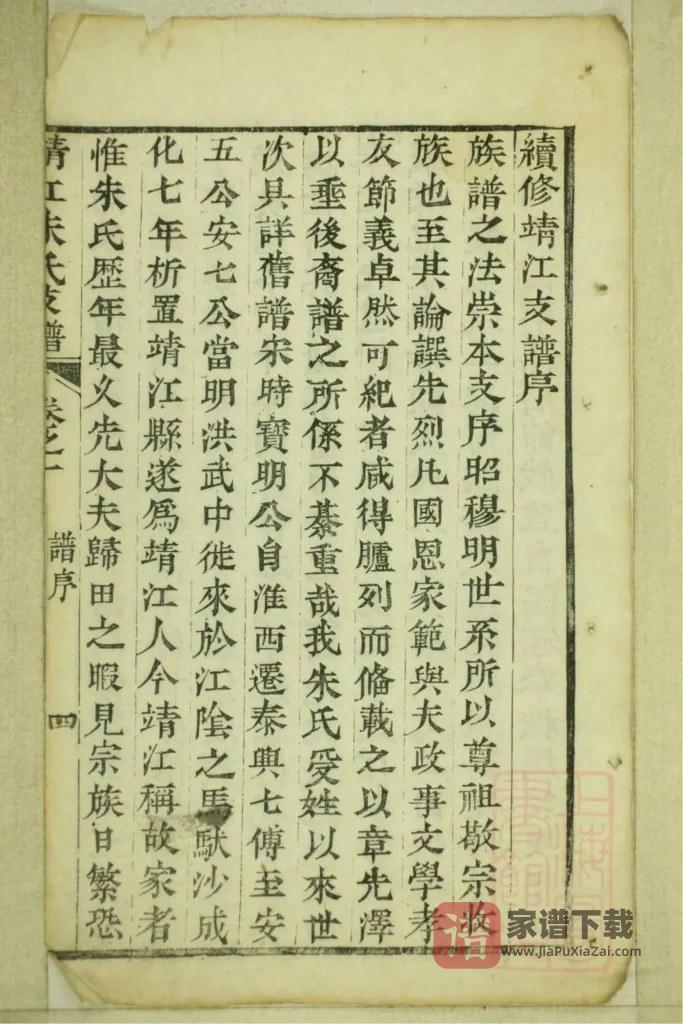 續修靖江支譜序
族譜之法崇本支序昭穆明世系所以尊祖敬宗收
族也至其論譔先烈凡國恩家範與夫政事文學孝
友節義卓然可紀者咸得臚列而備載之以章先澤
以垂後裔譜之所係不綦重哉我朱氏受姓以來世
次具詳舊譜宋時寶明公自淮西遷泰興七傳至安
五公安七公當明洪武中徙來於江陰之馬馱沙成
化七年析置靖江縣遂爲靖江人今靖江稱故家者
惟朱氏歷年最久先大夫歸田之暇見宗族日繁恐
靖江朱氏支譜 卷之一 譜序 四
谱 家谱下载
www.JiaPuXiaZai.com